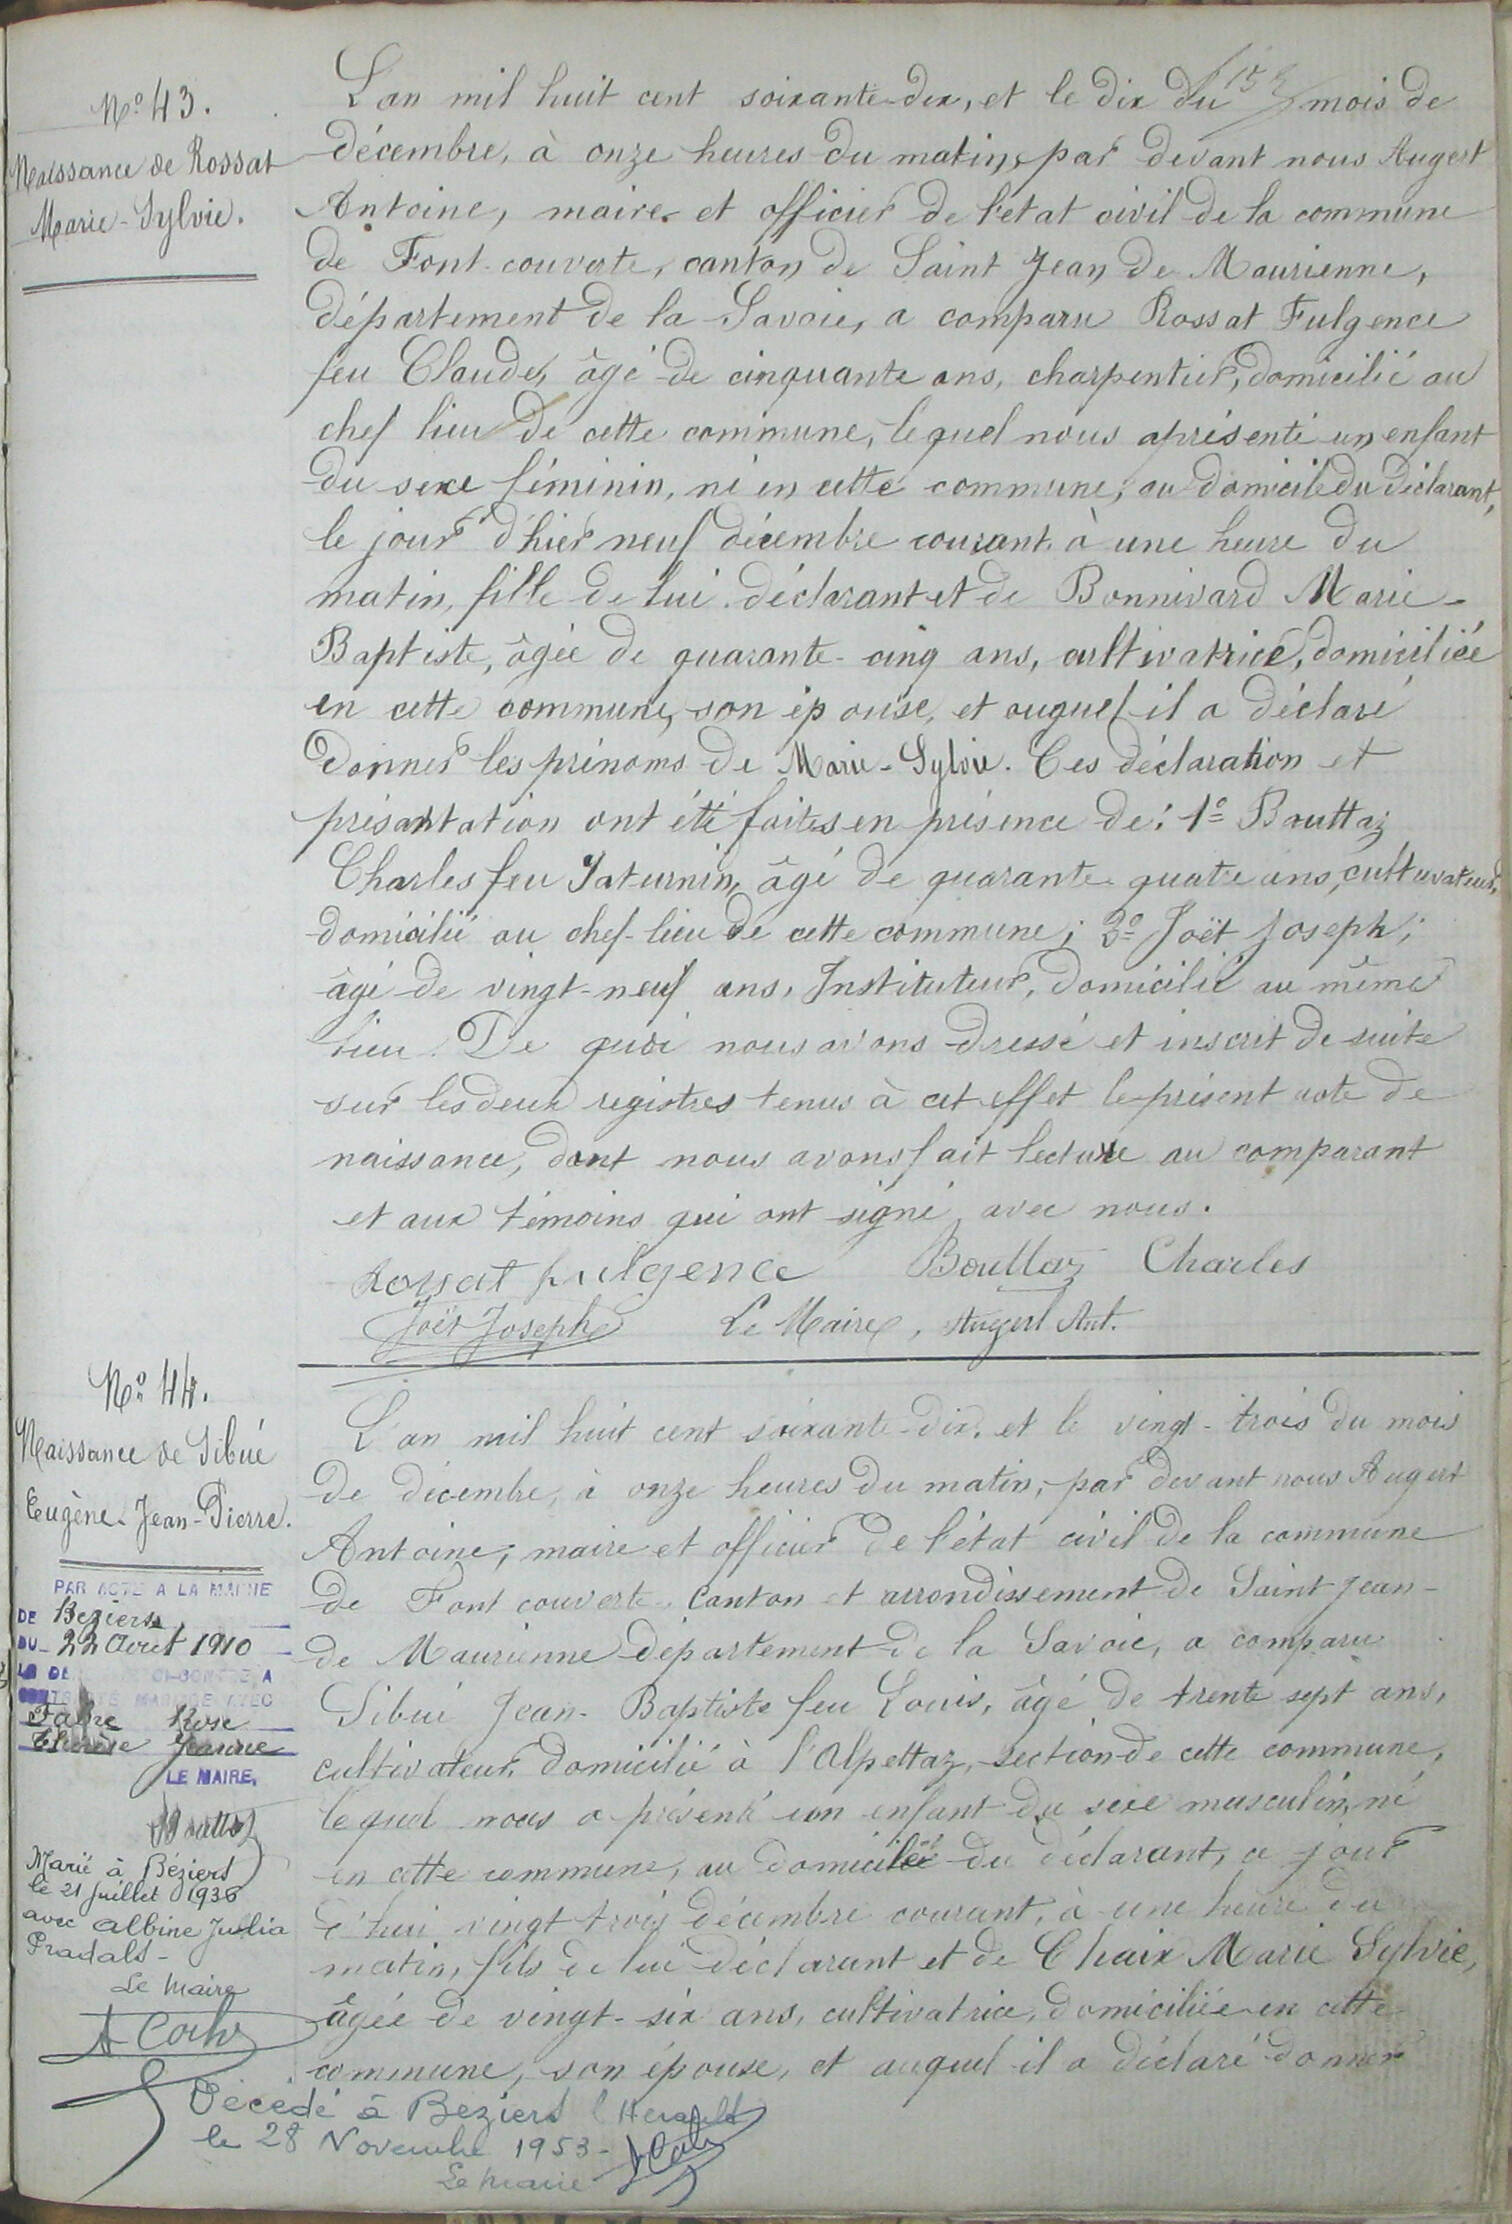 N° 43.
Naissance de Rossat
Marie-Sylvie.
L'an mil huit cent soixante-dix, et le dix du mois de
décembre, à onze heures du matin, par devant nous Augert
Antoine, maire et officier de l'état civil de la commune
de Font-couverte, canton de Saint Jean de Maurienne,
département de la Savoie, a comparu Rossat Fulgence
feu Claude, âgé de cinquante ans, charpentier, domicilié au
chef lieu de cette commune, lequel nous a présenté un enfant
du sexe féminin, né en cette commune, au domicile du déclarant,
le jour d'hier neuf décembre courant à une heure du
matin, fille de lui déclarant et de Bonnivard Marie-
Baptiste, âgée de quarante-cinq ans, cultivatrice, domiciliée
en cette commune, son épouse, et auquel il a déclaré
donner les prénoms de Marie-Sylvie. Ces déclaration et
présentation ont été faites en présence de: 1° Bouttaz
Charles feu Saturnin, âgé de quarante quatre ans, cultivateur,
domicilié au chef-lieu de cette commune; 2° Joët Joseph;
âgé de vingt-neuf ans, Instituteur, domicilié au même
lieu. De quoi nous avons dressé et inscrit de suite
sur les deux registres tenus à cet effet le présent acte de
naissance, dont nous avons fait lecture au comparant
et aux témoins qui ont signé avec nous.
Rossat fulgence Bouttaz Charles
Joët Joseph Le Maire, Augert Ant.
N° 44.
Naissance de Sibué
Eugène-Jean-Pierre.
PAR ACTE A LA MAIRIE
DE Beziers
DU 22 Aout 1910
LE DE CI-CONTRE A
CONTRACTE MARIAGE AVEC
Fabre Rose
Thérèse Jeanne
LE MAIRE,
Bouttaz
Marié à Béziers
le 21 Juillet 1936
avec Albine Julia
Pradals-
Le Maire
Décédé à Beziers (Herault)
le 28 Novembre 1953-
Le Maire
L'an mil huit cent soixante-dix, et le vingt-trois du mois
de décembre, à onze heures du matin, par devant nous Augert
Antoine, maire et officier de l'état civil de la commune
de Font couverte Canton et arrondissement de Saint Jean-
de Maurienne département de la Savoie, a comparu
Sibué Jean-Baptiste feu Louis, âgé de trente sept ans,
cultivateur, domicilié à l'Alpettaz, section de cette commune,
lequel nous a présenté un enfant du sexe masculin, né
en cette commune, au domicile du déclarant, ce jour
d'hui vingt trois décembre courant, à une heure du
matin, fils de lui déclarant et de Chaix Marie Sylvie,
âgée de vingt-six ans, cultivatrice, domiciliée en cette
commune, son épouse, et auquel il a déclaré donner